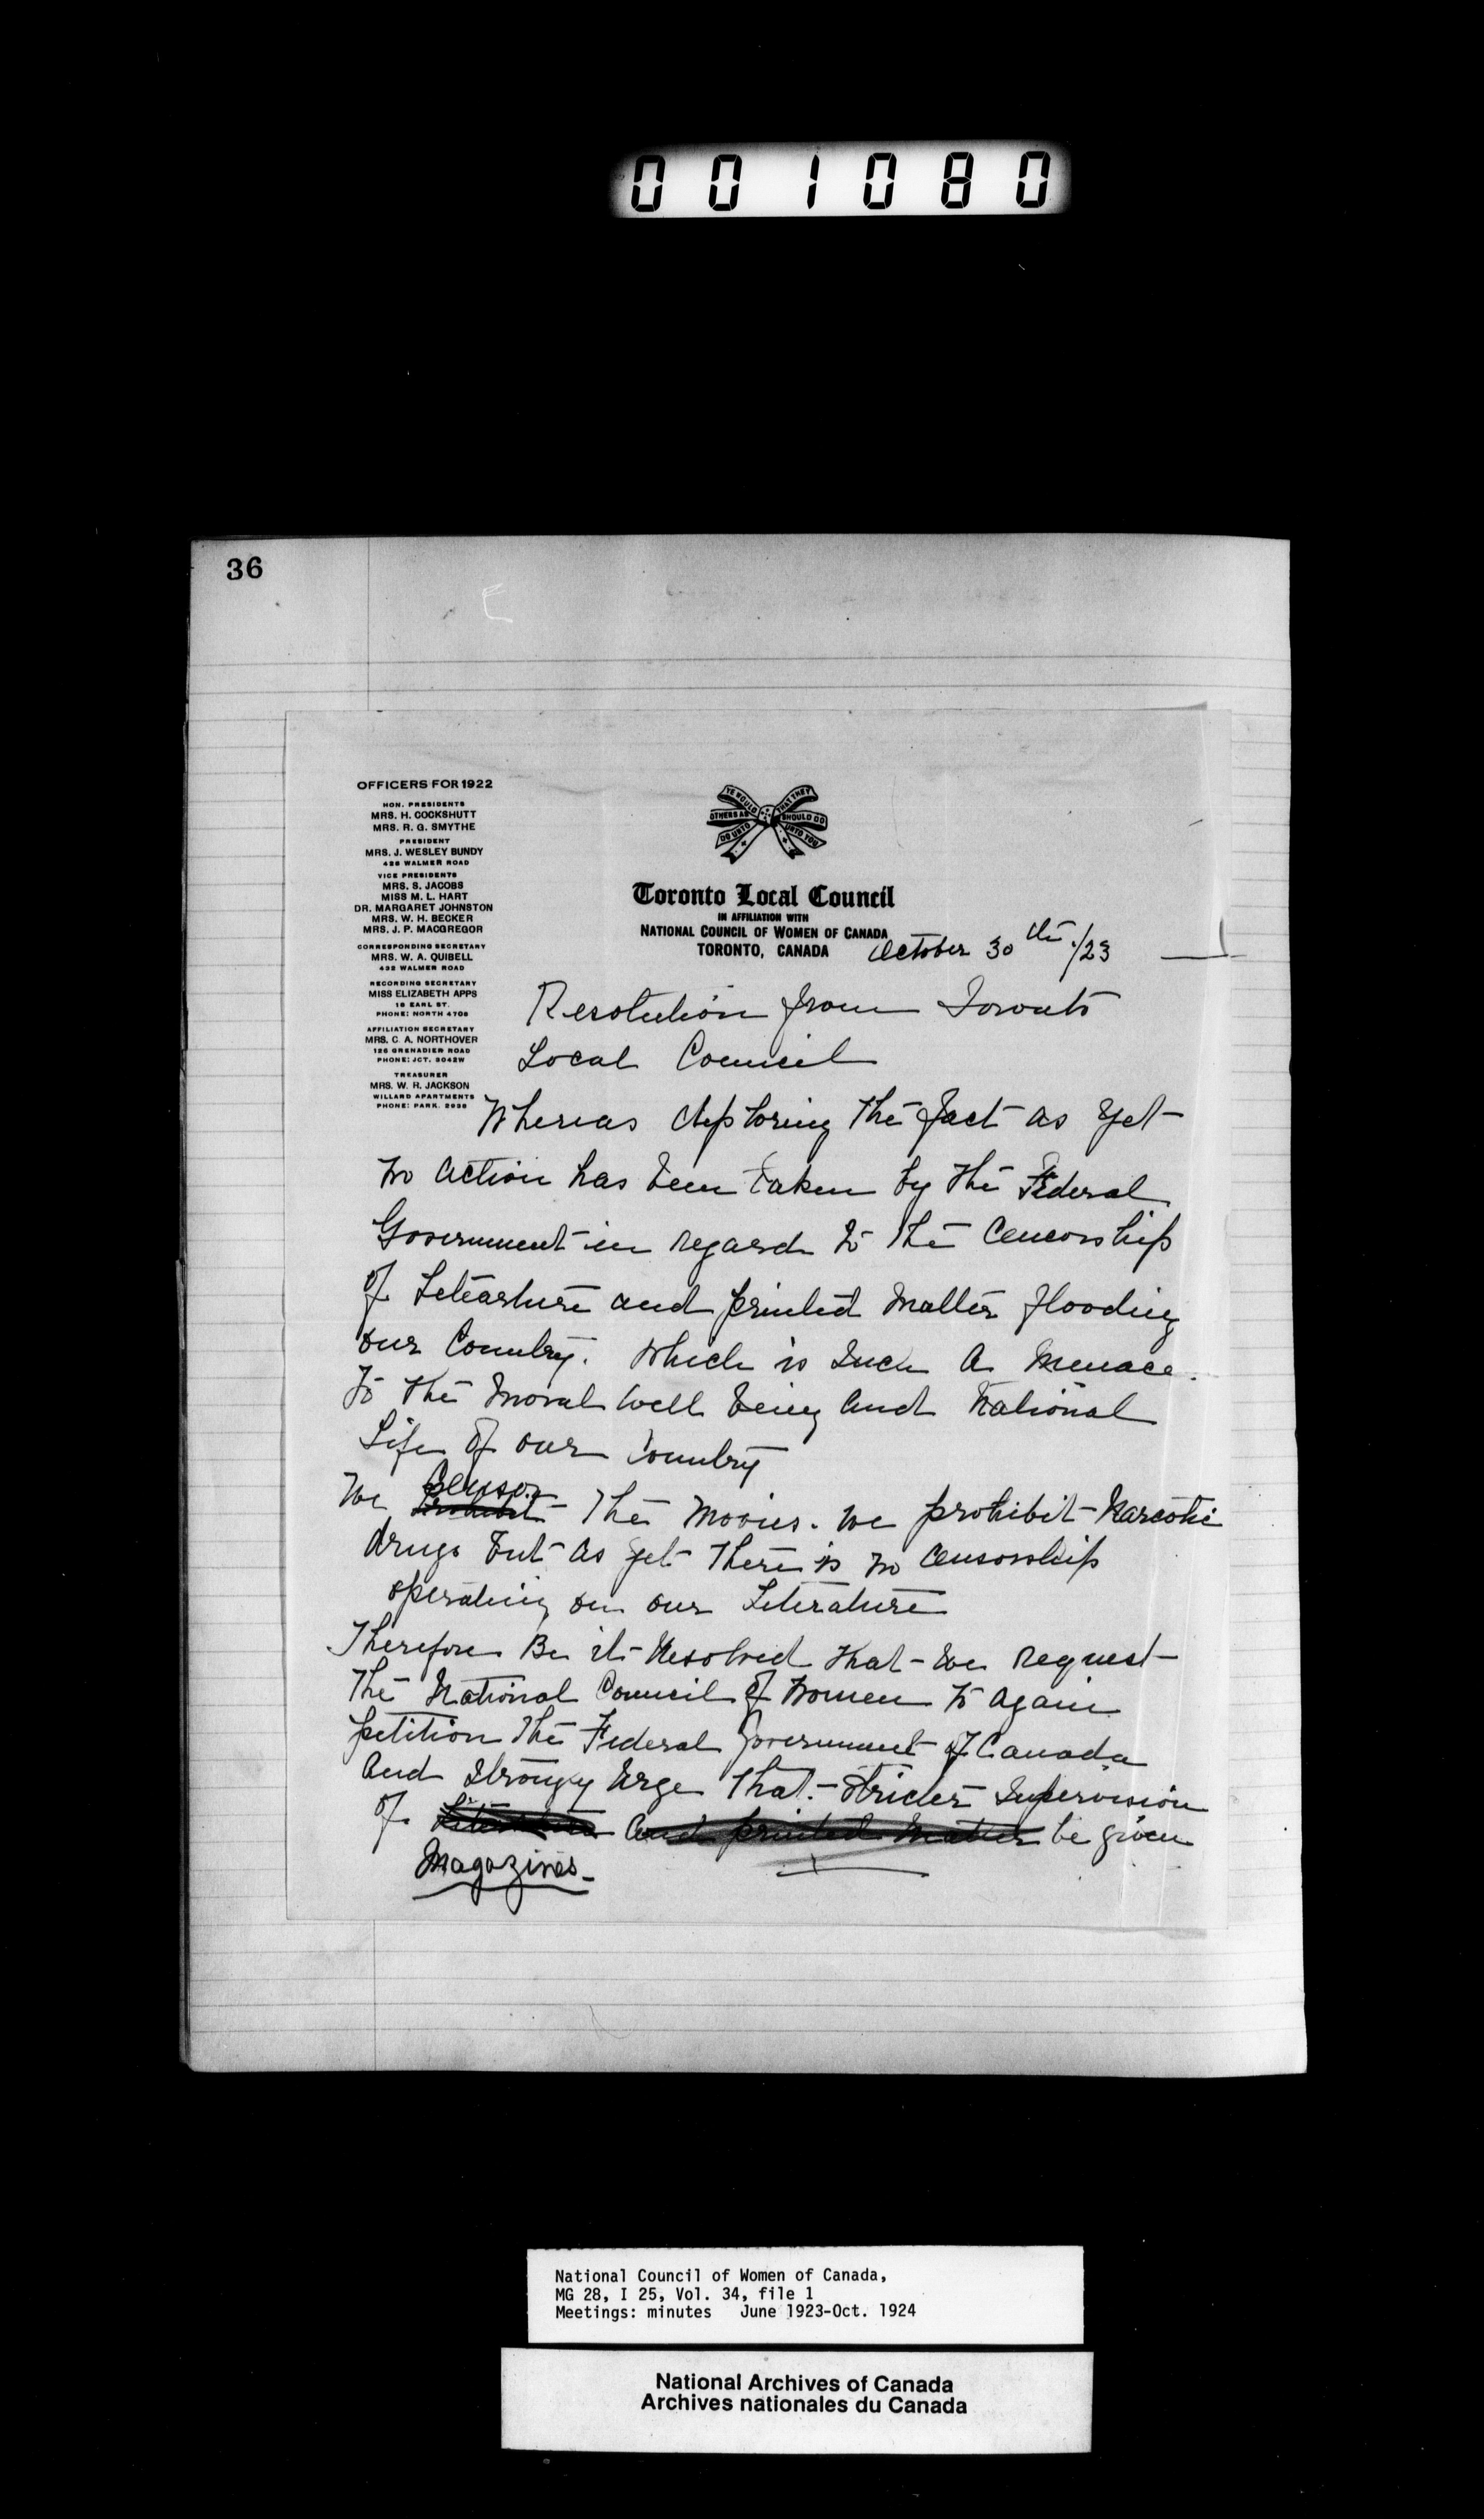 001080
36
OFFICERS FOR 1922
HON. PRESIDENTS
MRS. H. COCKSHUTT
MRS. R. G. SMYTHE
PRESIDENT
MRS. J. WESLEY BUNDY
428 WALMER ROAD
VICE PRESIDENTS
MRS. S. JACOBS
MISS M. L. HART
DR. MARGARET JOHNSTON
MRS. W. H. BECKER
MRS. J. P. MACGREGOR
CORRESPONDING SECRETARY
MRS. W. A. QUIBELL
432 WALMER ROAD
RECORDING SECRETARY
MISS ELIZABETH APPS
18 EARL ST.
PHONE: NORTH 4708
AFFILIATION SECRETARY
MRS. C. A. NORTHOVER
126 GRENADIER ROAD
PHONE: JCT. 5042W
TREASURER
MRS. W. R. JACKSON
WILLARD APARTMENTS
PHONE: PARK. 2938
DO UNTO
OTHERS AS
YE WOULD
THAT THEY
SHOULD DO
UNTO YOU
Toronto Local Council
IN AFFILIATION WITH
NATIONAL COUNCIL OF WOMEN OF CANADA
TORONTO, CANADA
October 30th./23
Resolution from Toronto
Local Council
Whereas deploring the fact as yet
no action has been taken by the Federal
Government in regard to the Cencorship
of Litearture and printed matter flooding
our Country. which is such a menace.
to the moral well being and National
Life of our Country
We Censor Prohibit the movies. we prohibit Narcotic
drugs but as yet there is no censorship
operating on our Literature
Therefore Be it Resolved that we request
the National Council of Women to again
petition the Federal Government of Canada
and strongly urge that stricter supervision
of Literature and printed matter be given
Magazines
National Council of Women of Canada,
MG 28, I 25, Vol. 34, file 1
Meetings: minutes June 1923-Oct. 1924
National Archives of Canada
Archives nationales du Canada